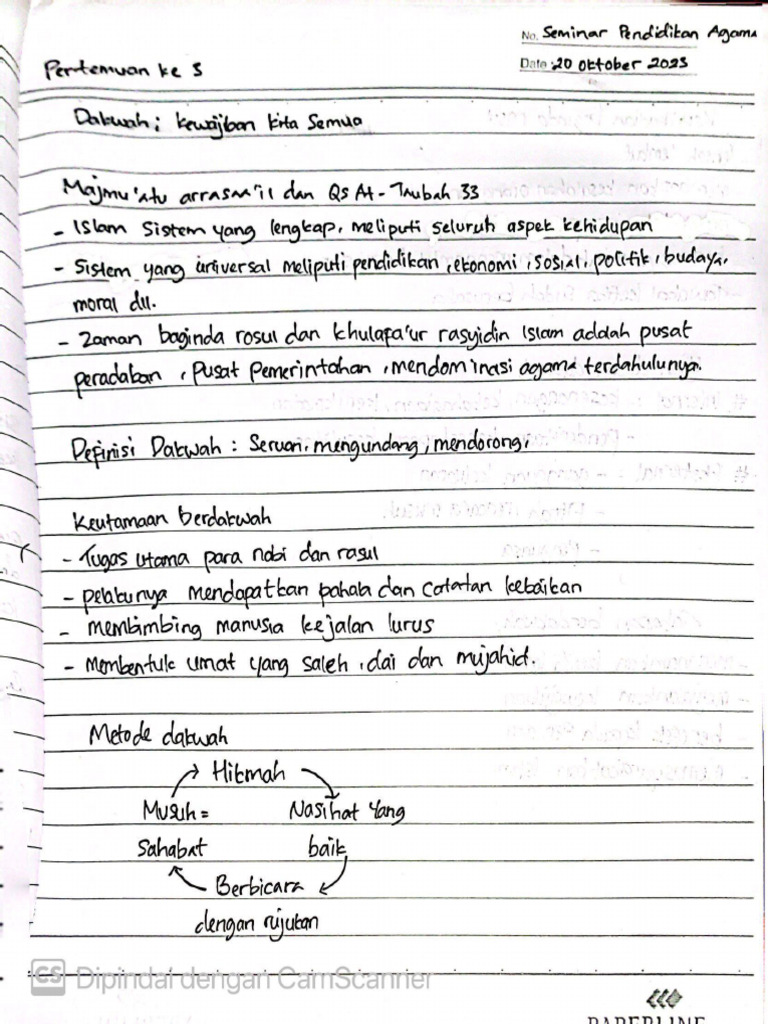 No. Seminar Pendidikan Agama
Pertemuan ke 5
Date: 20 Oktober 2023
Dakwah; kewajiban kita Semua
Majmu'atu arrasa'il dan Qs At-Taubah 33
- Islam Sistem yang lengkap, meliputi seluruh aspek kehidupan
- Sistem yang universal meliputi pendidikan, ekonomi, sosial, politik, budaya,
moral dll.
- Zaman baginda rosul dan khulafa'ur rasyidin Islam adalah pusat
peradaban, pusat pemerintahan, mendominasi agama terdahulunya.
Definisi Dakwah: Seruan, mengundang, mendorong,
Keutamaan berdakwah
- Tugas utama para nabi dan rasul
- pelakunya mendapatkan pahala dan catatan kebaikan
- membimbing manusia kejalan lurus
- Membentuk umat yang saleh, dai dan mujahid.
Metode dakwah
Hikmah
Musuh = Nasihat yang
Sahabat baik
Berbicara
dengan rujukan
CS Dipindai dengan CamScanner
PAPERLINE